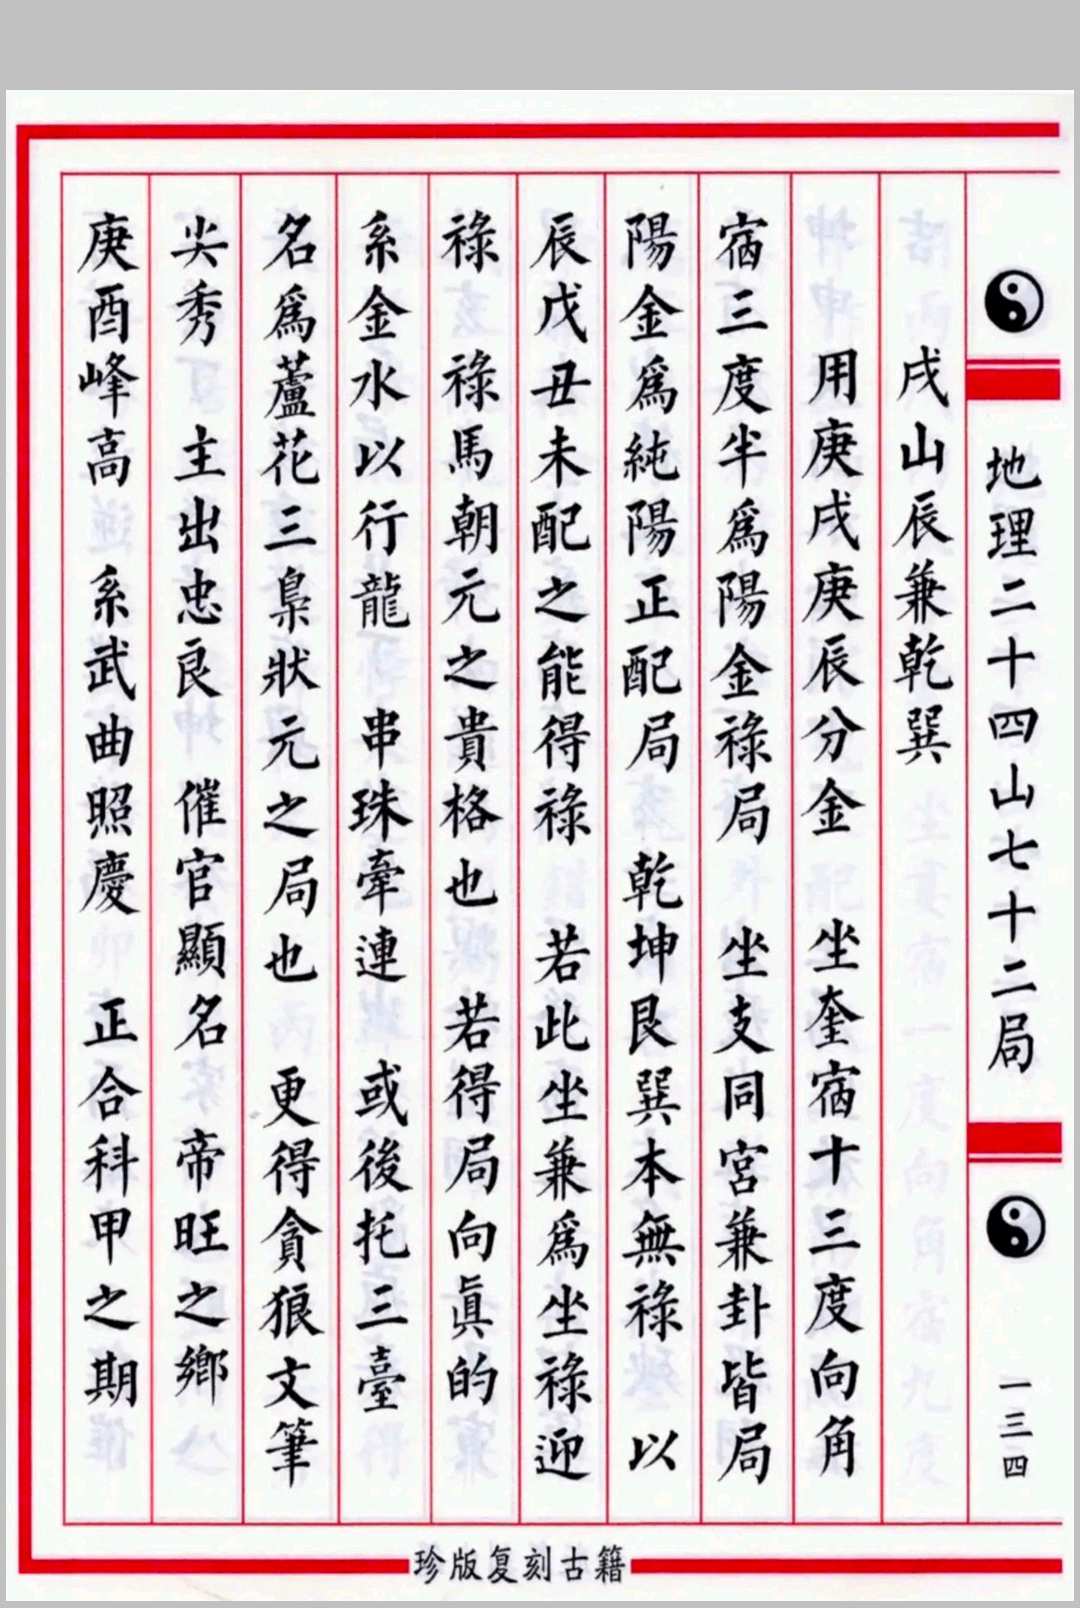 地理二十四山七十二局
一三四
戌山辰兼乾巽
用庚戌庚辰分金　坐奎宿十三度向角
宿三度半爲陽金祿局　坐支同宮兼卦皆局
陽金爲純陽正配局　乾坤艮巽本無祿以
辰戌丑未配之能得祿　若此坐兼爲坐祿迎
祿　祿馬朝元之貴格也　若得局向眞的
系金水以行龍　串珠牽連　或後托三臺
名爲蘆花三梟狀元之局也　更得貪狼文筆
尖秀　主出忠良　催官顯名　帝旺之鄉
庚酉峰高　系武曲照慶　正合科甲之期
珍版复刻古籍